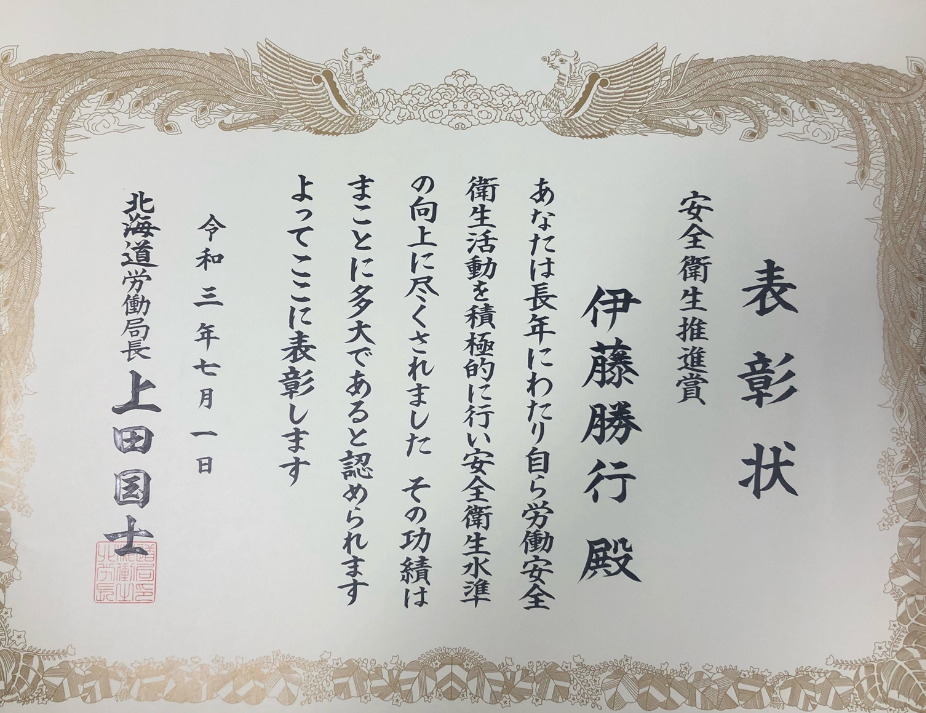 表彰状
安全衛生推進賞
伊藤勝行 殿
あなたは長年にわたり自ら労働安全
衛生活動を積極的に行い安全衛生水準
の向上に尽くされました その功績は
まことに多大であると認められます
よってここに表彰します
令和三年七月一日
北海道労働局長 上田国士